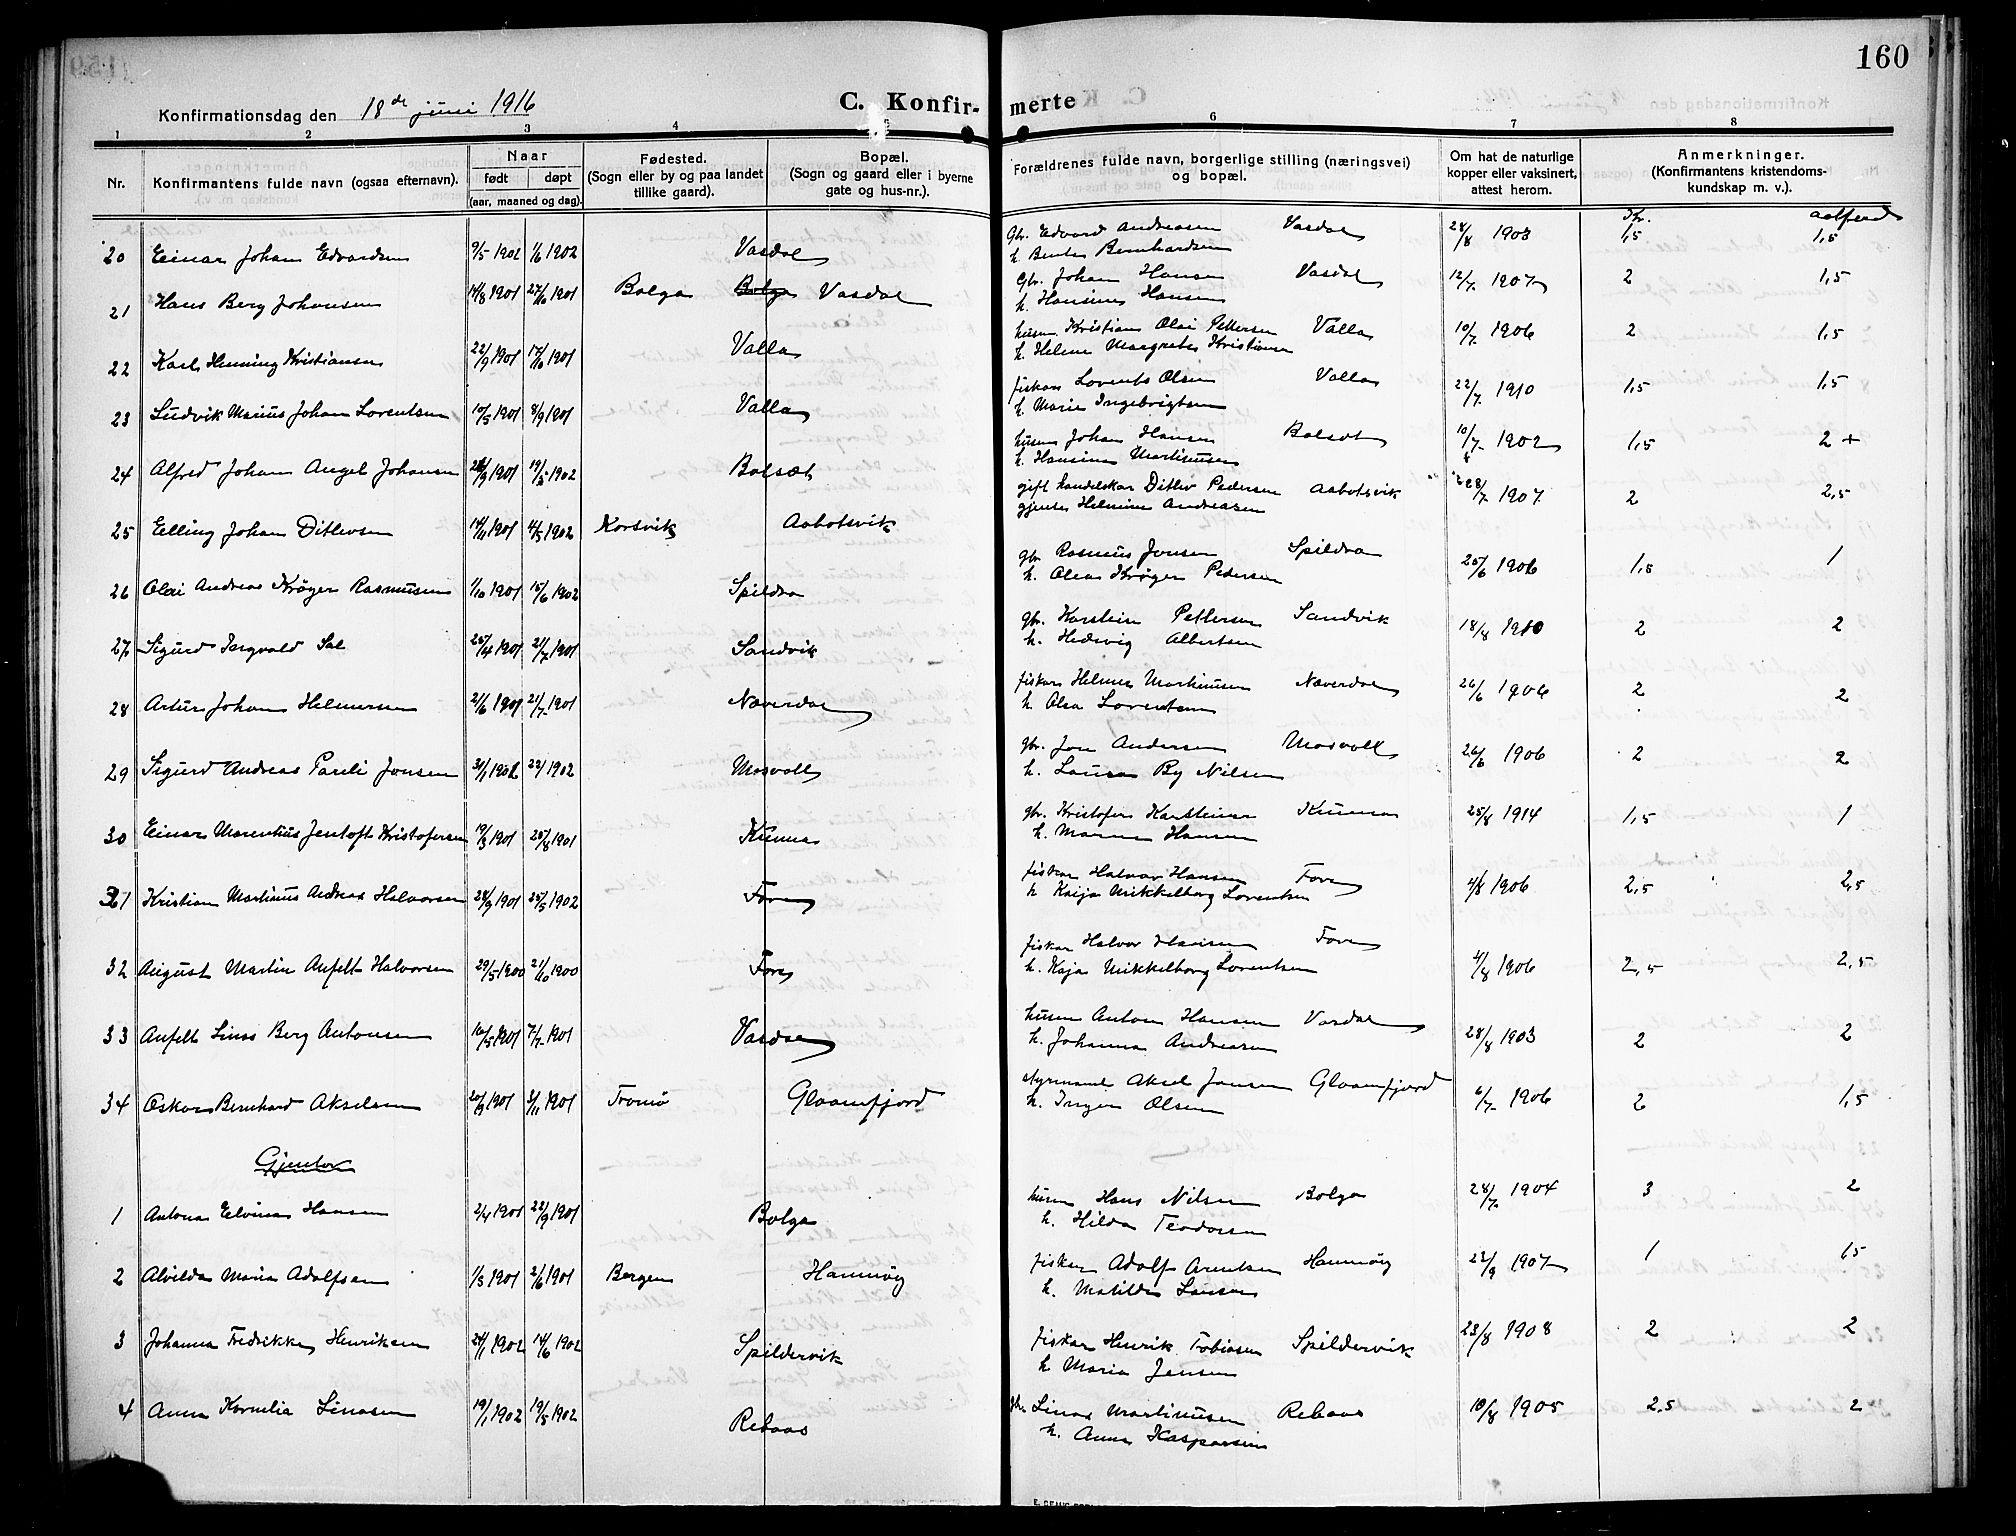 160
Konfirmationsdag den 18de juni 1916
C. Konfir-merte
1 2 3 4 5 6 7 8
Nr. Konfirmantens fulde navn (ogsaa efternavn). Naar født døpt (aar, maaned og dag). Fødested. (Sogn eller by og paa landet tillike gaard). Bopæl. (Sogn og gaard eller i byerne gate og hus-nr.). Forældrenes fulde navn, borgerlige stilling (næringsvei) og bopæl. Om hat de naturlige kopper eller vaksinert, attest herom. Anmerkninger. (Konfirmantens kristendoms-kundskap m. v.).
Kr. aatferd
20 Einar Johan Edvardsen 9/5 1902 1/6 1902 Vasdal gbr. Edvard Andreasen Vasdal 28/8 1903 1,5 1,5
h. Bentes Bernhardsen
21 Hans Berg Johansen 14/8 1901 27/10 1901 Bolga Bolga Vasdal gbr. Johan Hansen Vasdal 12/7 1907 2 1,5
h. Hansine Hansen
22 Karl Henning Kristiansen 22/9 1901 17/10 1901 Valla husm Kristian Olai Pettersen Valla 10/7 1906 2 1,5
h. Helene Margrete Kristiansen
23 Ludvik Marius Johan Lorentsen 10/5 1901 8/9 1901 Valla fiskar Lorents Olsen Valla 22/7 1910 1,5 1,5
h. Marie Ingebrigtsen
24 Alfred Johan Angel Johansen 28/9 1901 19/5 1902 Bolsæt husm Johan Hansen Bolsæt 10/7 1902 1,5 2 +
h. Hansine Martinusen
25 Elling Johan Ditlevsen 14/11 1901 4/5 1902 Korsvik Aabotsvik gift handelskar Ditlev Pedersen Aabotsvik 28/7 1907 2 2,5
gjente Helmine Andreasen
26 Olai Andreas Krøger Rasmusen 1/10 1901 15/6 1902 Spildra gbr Rasmus Jonsen Spildra 25/6 1906 1,5 1
h. Olea Krøger Pedersen
27 Sigurd Ingvald Sal 25/4 1901 21/7 1901 Sandvik gbr. Karstein Pettersen Sandvik 18/8 1910 2 2
h. Hedvig Albertsen
28 Artur Johan Helmersen 21/6 1901 21/7 1901 Næverdal fiskar Helmer Martinusen Næverdal 26/6 1906 2 2
h. Olea Lorentsen
29 Sigurd Andreas Pareli Jonsen 31/1 1902 22/ 1902 Mosvoll gbr. Jon Andersen Mosvoll 26/6 1906 2 2
h. Laura By Nilsen
30 Einar Marentius Jentoft Kristofersen 19/3 1901 25/8 1901 Kunna gbr. Kristofer Karsteinsen Kunna 25/8 1914 1,5 1
h. Hansen
31 Kristian Martinus Andreas Halvorsen 28/9 1901 25/5 1902 Fore fiskar Halvor Hansen Fore 4/8 1906 2,5 2,5
h Kaija Mikkelborg Lorentsen
32 August Martin Anfelt Halvorsen 29/5 1900 21/10 1900 Fore fiskar Halvor Hansen Fore 4/8 1906 2,5 2,5
h. Kaja Mikkelborg Lorentsen
33 Anfelt Linus Berg Antonsen 16/5 1901 7/7 1901 Vasdal husm Anton Hansen Vasdal 28/8 1903 2 2
h. Johanna Andreasen
34 Oskar Bernhard Akselsen 20/9 1901 3/11 1901 Tromsø Glaamfjord styrmand Aksel Jonsen Glaamfjord 6/7 1906 2 1,5
h. Inger Olsen
Gjentor
1 Antona Elvina Hansen 2/4 1901 22/9 1901 Bolga husm Hans Nilsen Bolga 28/7 1904 3 2
h. Hilda Teodorsen
2 Alvilda Maria Adolfsen 1/3 1901 2/6 1901 Bergen Hamnøy fiskar Adolf Arentsen Hamnøy 23/9 1907 1 15
h. Matilde Larsen
3 Johanna Fredrikke Henriksen 24/1 1902 14/6 1902 Spildervik fiskar Henrik Tobiasen Spildervik 23/8 1908 2 2
h Maria Jensen
4 Anna Kornelia Linasen 19/1 1902 19/5 1902 Rebaas gbr Linas Martinusen Rebaas 10/8 1905 2,5 2
h. Anna Kaspersen